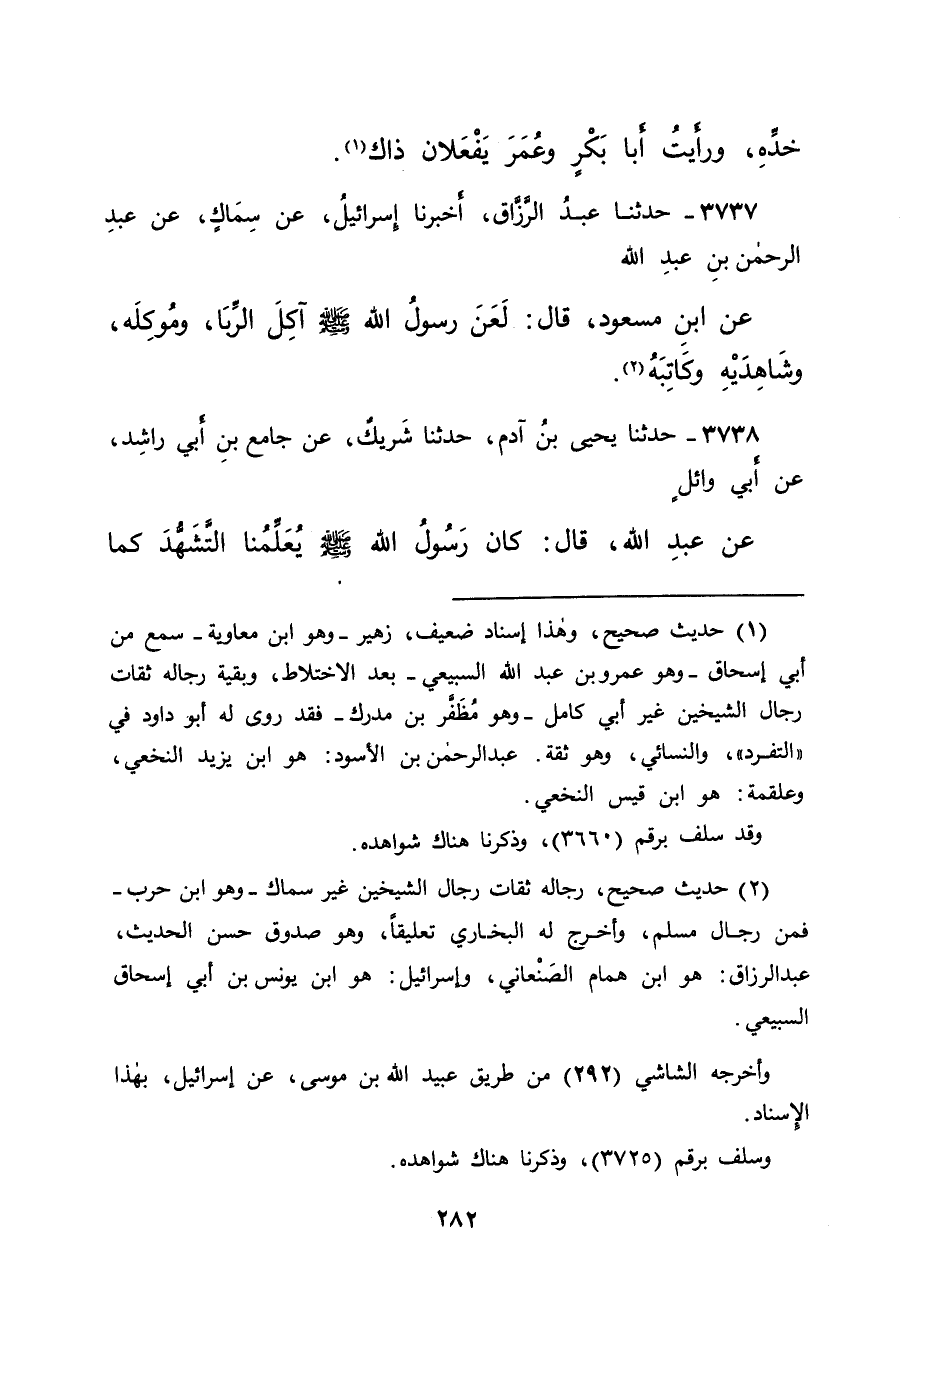 خدِّهِ، ورأَيتُ أَبا بَكْرٍ وعُمَرَ يَفْعَلان ذاك(١).
٣٧٣٧ـ حدثنا عبدُ الرَّزَّاق، أَخبرنا إِسرائيلُ، عن سِمَاكٍ، عن عبدِ
الرحمٰن بنِ عبدِ الله
عن ابنِ مسعود، قال: لَعَنَ رسولُ الله ﷺ آكِلَ الرِّبَا، ومُوكِلَه،
وشَاهِدَيْهِ وكَاتِبَهُ(٢).
٣٧٣٨ـ حدثنا يحيى بنُ آدم، حدثنا شَريكٌ، عن جامع بنِ أَبي راشِد،
عن أَبي وائلٍ
عن عبدِ الله، قال: كان رَسُولُ الله ﷺ يُعَلِّمُنا التَّشَهُّدَ كما
(١) حديث صحيح، وهٰذا إسناد ضعيف، زهير ـ وهو ابن معاوية ـ سمع من
أبي إسحاق ـ وهو عمرو بن عبد الله السبيعي ـ بعد الاختلاط، وبقية رجاله ثقات
رجال الشيخين غير أبي كامل ـ وهو مُظَفَّر بن مدرك ـ فقد روى له أبو داود في
«التفرد»، والنسائي، وهو ثقة. عبدالرحمٰن بن الأسود: هو ابن يزيد النخعي،
وعلقمة: هو ابن قيس النخعي.
وقد سلف برقم (٣٦٦٠)، وذكرنا هناك شواهده.
(٢) حديث صحيح، رجاله ثقات رجال الشيخين غير سماك ـ وهو ابن حرب ـ
فمن رجال مسلم، وأخرج له البخاري تعليقاً، وهو صدوق حسن الحديث،
عبدالرزاق: هو ابن همام الصَنْعاني، وإسرائيل: هو ابن يونس بن أبي إسحاق
السبيعي.
وأخرجه الشاشي (٢٩٢) من طريق عبيد الله بن موسى، عن إسرائيل، بهٰذا
الإِسناد.
وسلف برقم (٣٧٢٥)، وذكرنا هناك شواهده.
٢٨٢